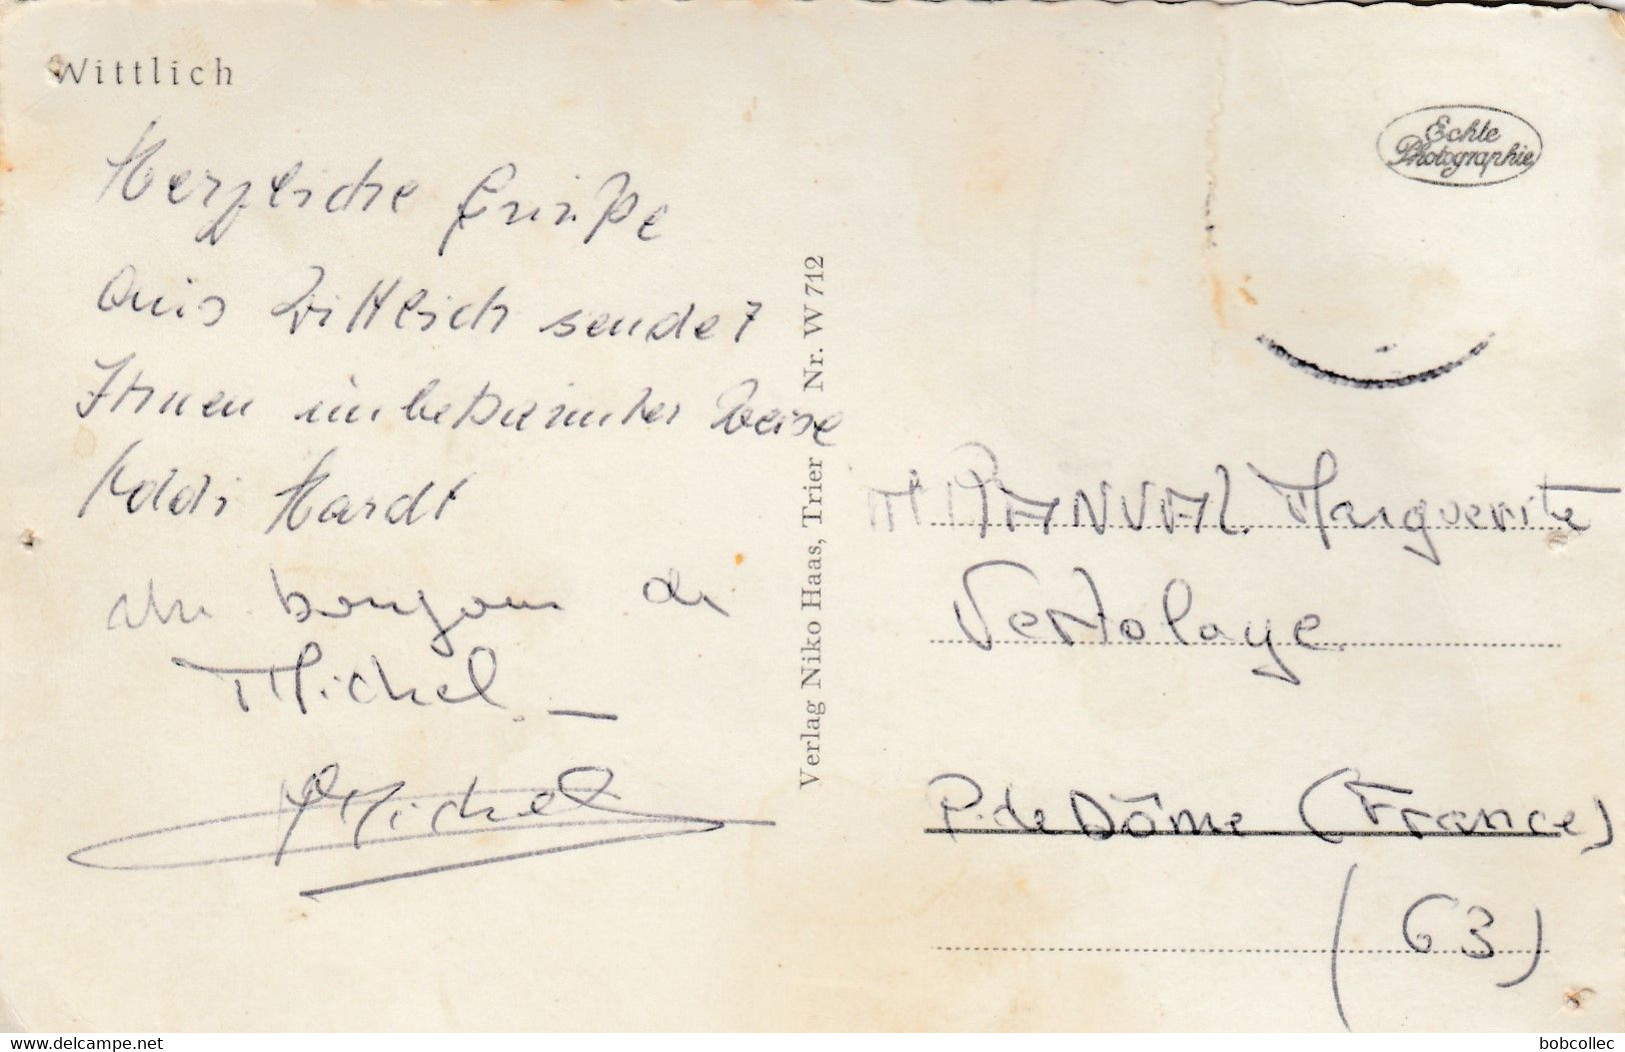 Wittlich
Echte
Photographie
Herzliche Grüße
aus Wittlich sendet
Ihnen unbekannter Weise
Hardt
bonjour de
Michel. _
Michel
Verlag Niko Haas, Trier Nr. W 712
Marguerite
Vertolaye
P. de Dôme (France)
(63)
delcampe.net
bobcollec